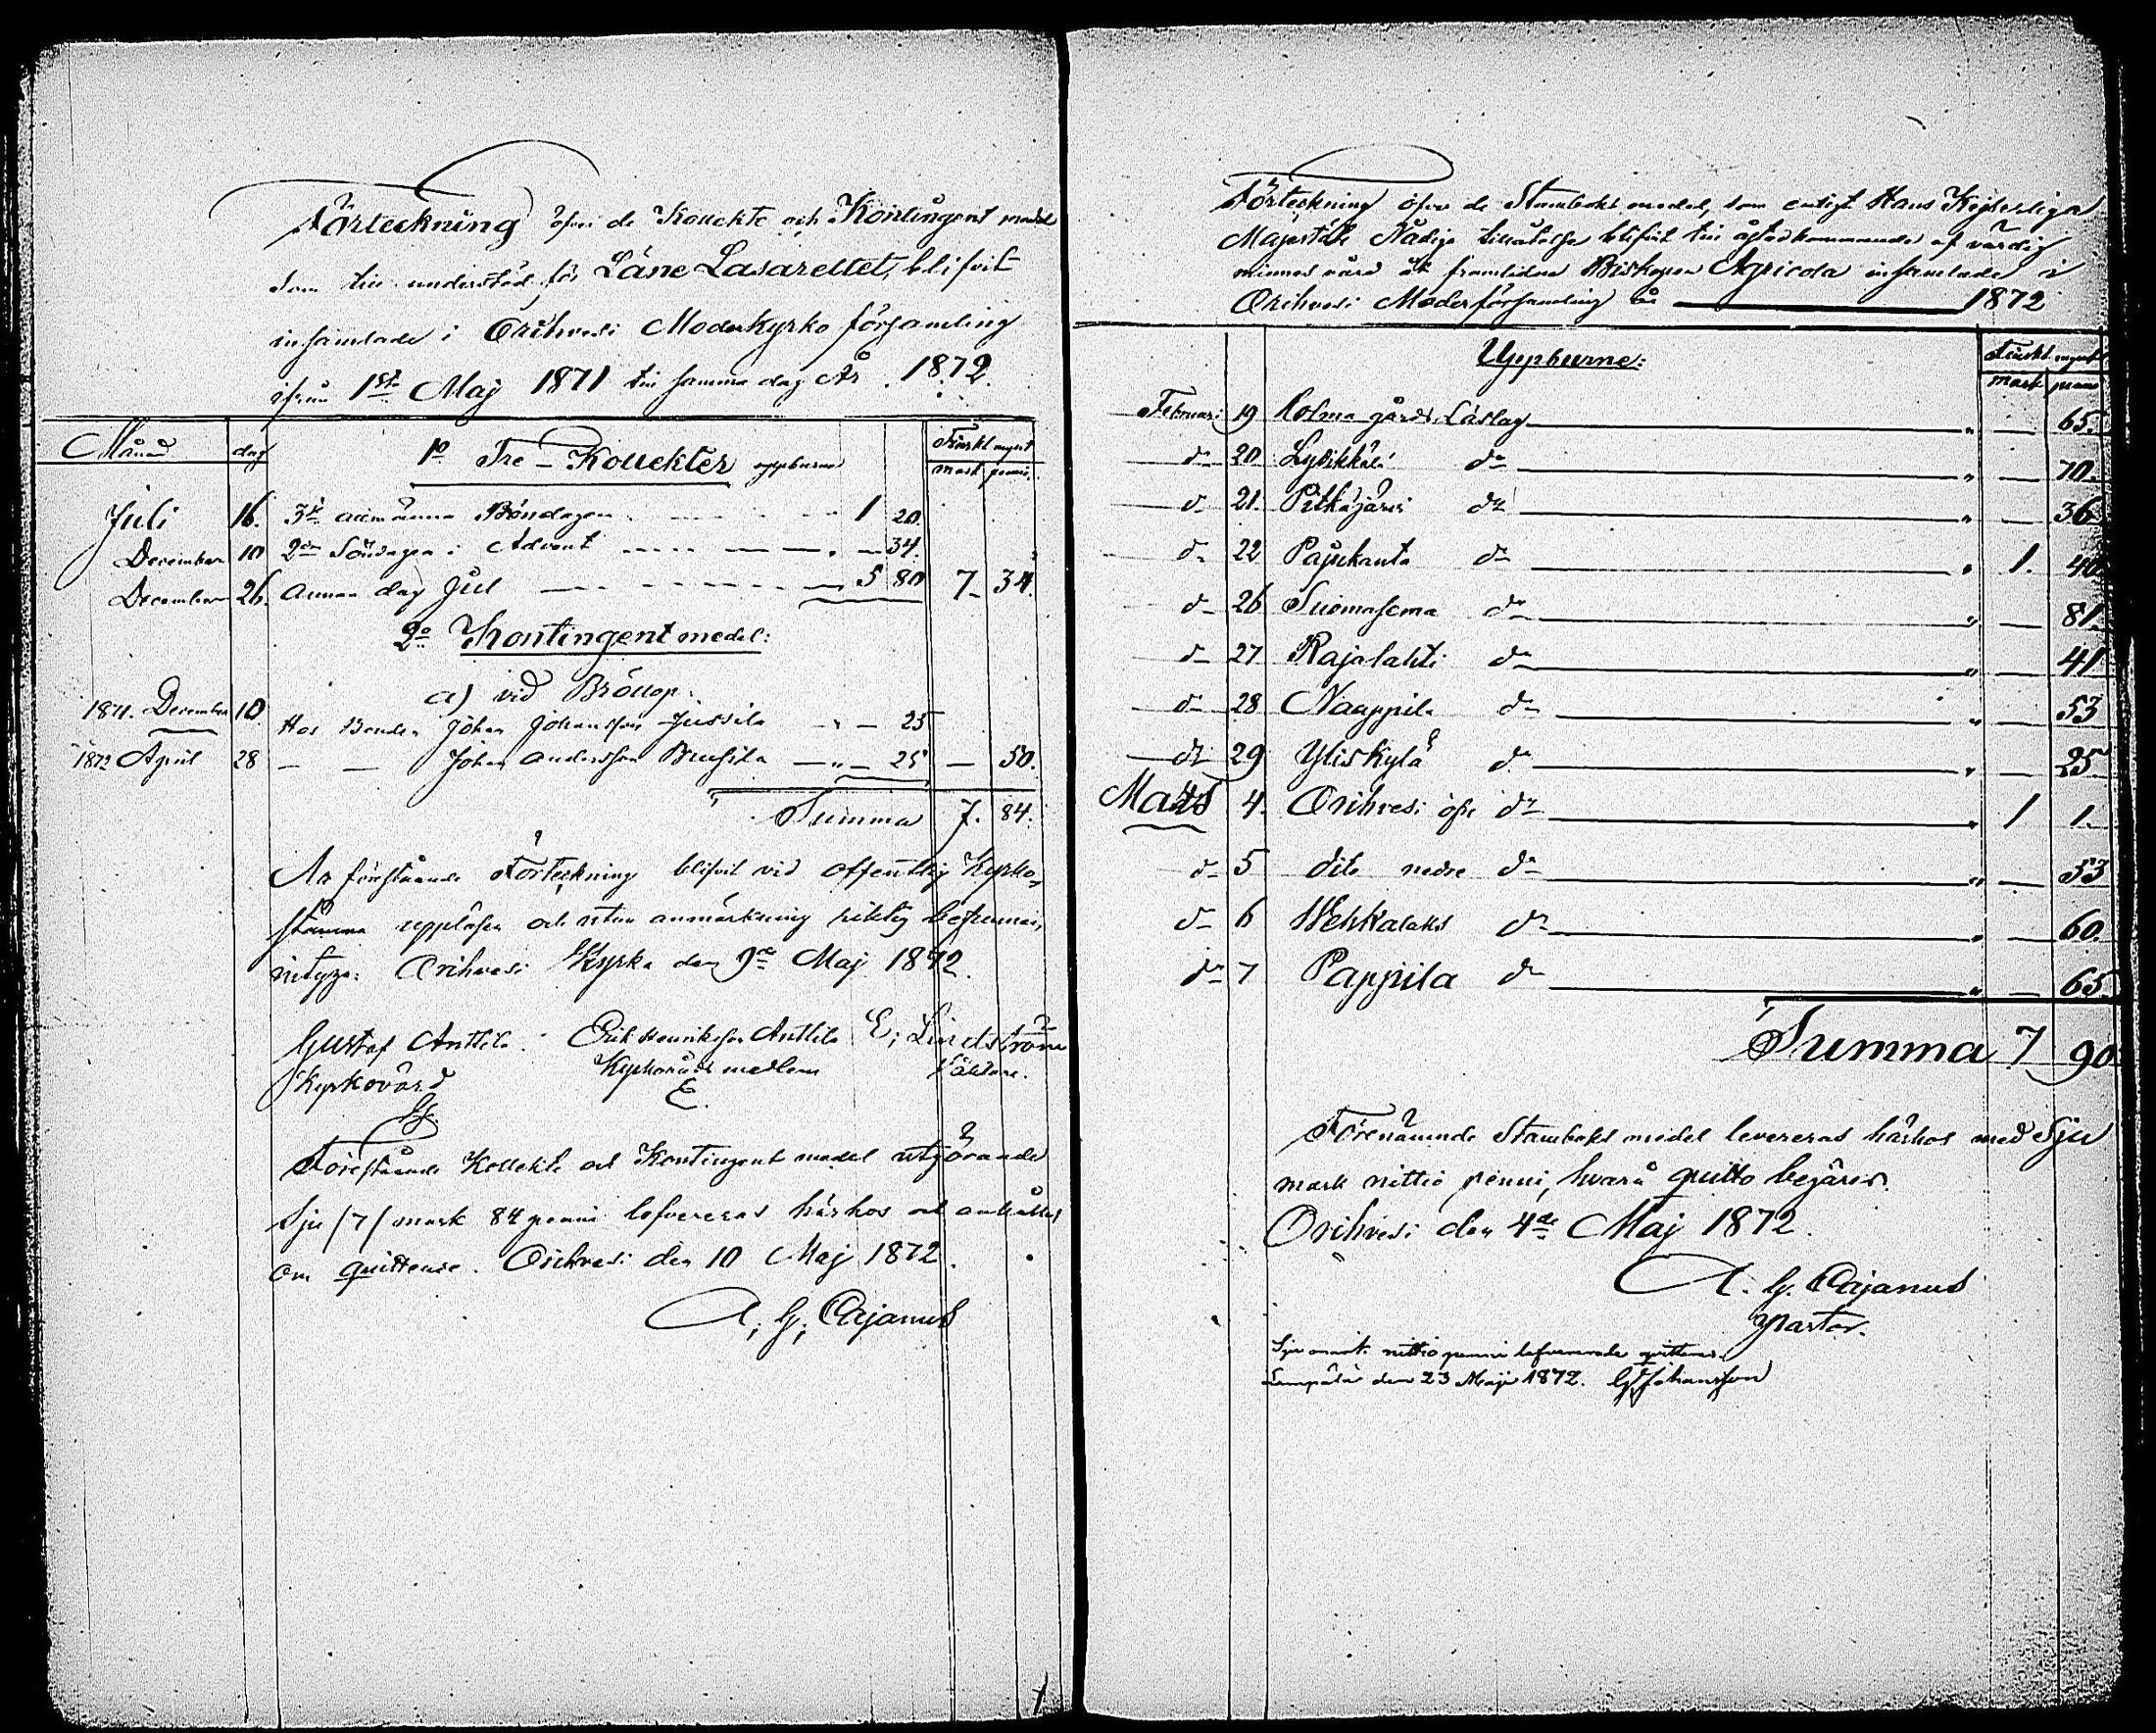 Förteckning öfver de Kollekte och Kontingent medel
som till understöd för Läne Lasarettet, blifvit
insamlade i Orihvesi Moderkyrko församling
ifrån 1sta Maj 1871 till samma dag År 1872.
Månad dag 1o Tre - Kollekter uppburne Finskt mynt
mark penni.
Juli 16. 3dje allmänna Böndagen 1 20.
December 10 2dra Söndagen i Advent " — 34.
December 26. Annan dag Jul 5 80 7 - 34.
2o Kontingent medel:
a) vid Bröllop:
1871. December 10 Hos Bonden Johan Johansson Jussila " — 25
1872 April 28 — — Johan Andersson — " — 25 — 50.
Summa 7. 84.
At förestående Förteckning blifvit vid offentlig Kyrko-
stämma uppläsen och utan anmärkning riktig befunnen,
intyga: Orihvesi Kyrka den 9de Maj 1872.
Gustaf Anttila. Erik Henriksson Anttila E; Lindström
Kyrkovärd Kyrkoråds medlem Väktare.
E.
Förestående Kollekte och Kontingent medel utgörande
Sju /7/ mark 84 penni lefvereras härhos och anhålles
om quittence. Orihvesi den 10 Maj 1872.
A; G; Cajanus
Förteckning öfver de Stamboks medel, som enligt Hans Kejserliga
Majestäts Nådiga tillåtelse blifvit till åstadkommande af värdig
minnesvård åt framlidne Biskopen Agricola insamlade i
Orihvesi Moderförsamling år 1872
Uppburne: Finskt mynt
mark penni
Februari 19 Holma gårds Läslag " — 65.
do 20 Lyvikkälä do " — 70.
do 21. Pitkäjärvi do " — 36
do 22 Pajukanta do " 1. 40.
do 26 Suomasema do " — 81.
do 27 Rajalahti do " — 41
do 28 Naappila do " — 53
do 29 Yliskylä do " — 25
Mars 4. Orihvesi öfre do " 1 1.
do 5 dito nedre do " — 53
do 6 Wehkalaks do " — 60.
do 7 Pappila do " — 65.
Summa 7 90
Förenämnde Stamboks medel levereras härhos med Sju
mark nittio penni, hvarå quitto begäres.
Orihvesi den 4de Maj 1872.
A. G. Cajanus
Pastor.
Sju mark nittio penni lefvererade qvitteras.
Lempälä den 23 Maji 1872. G Johansson